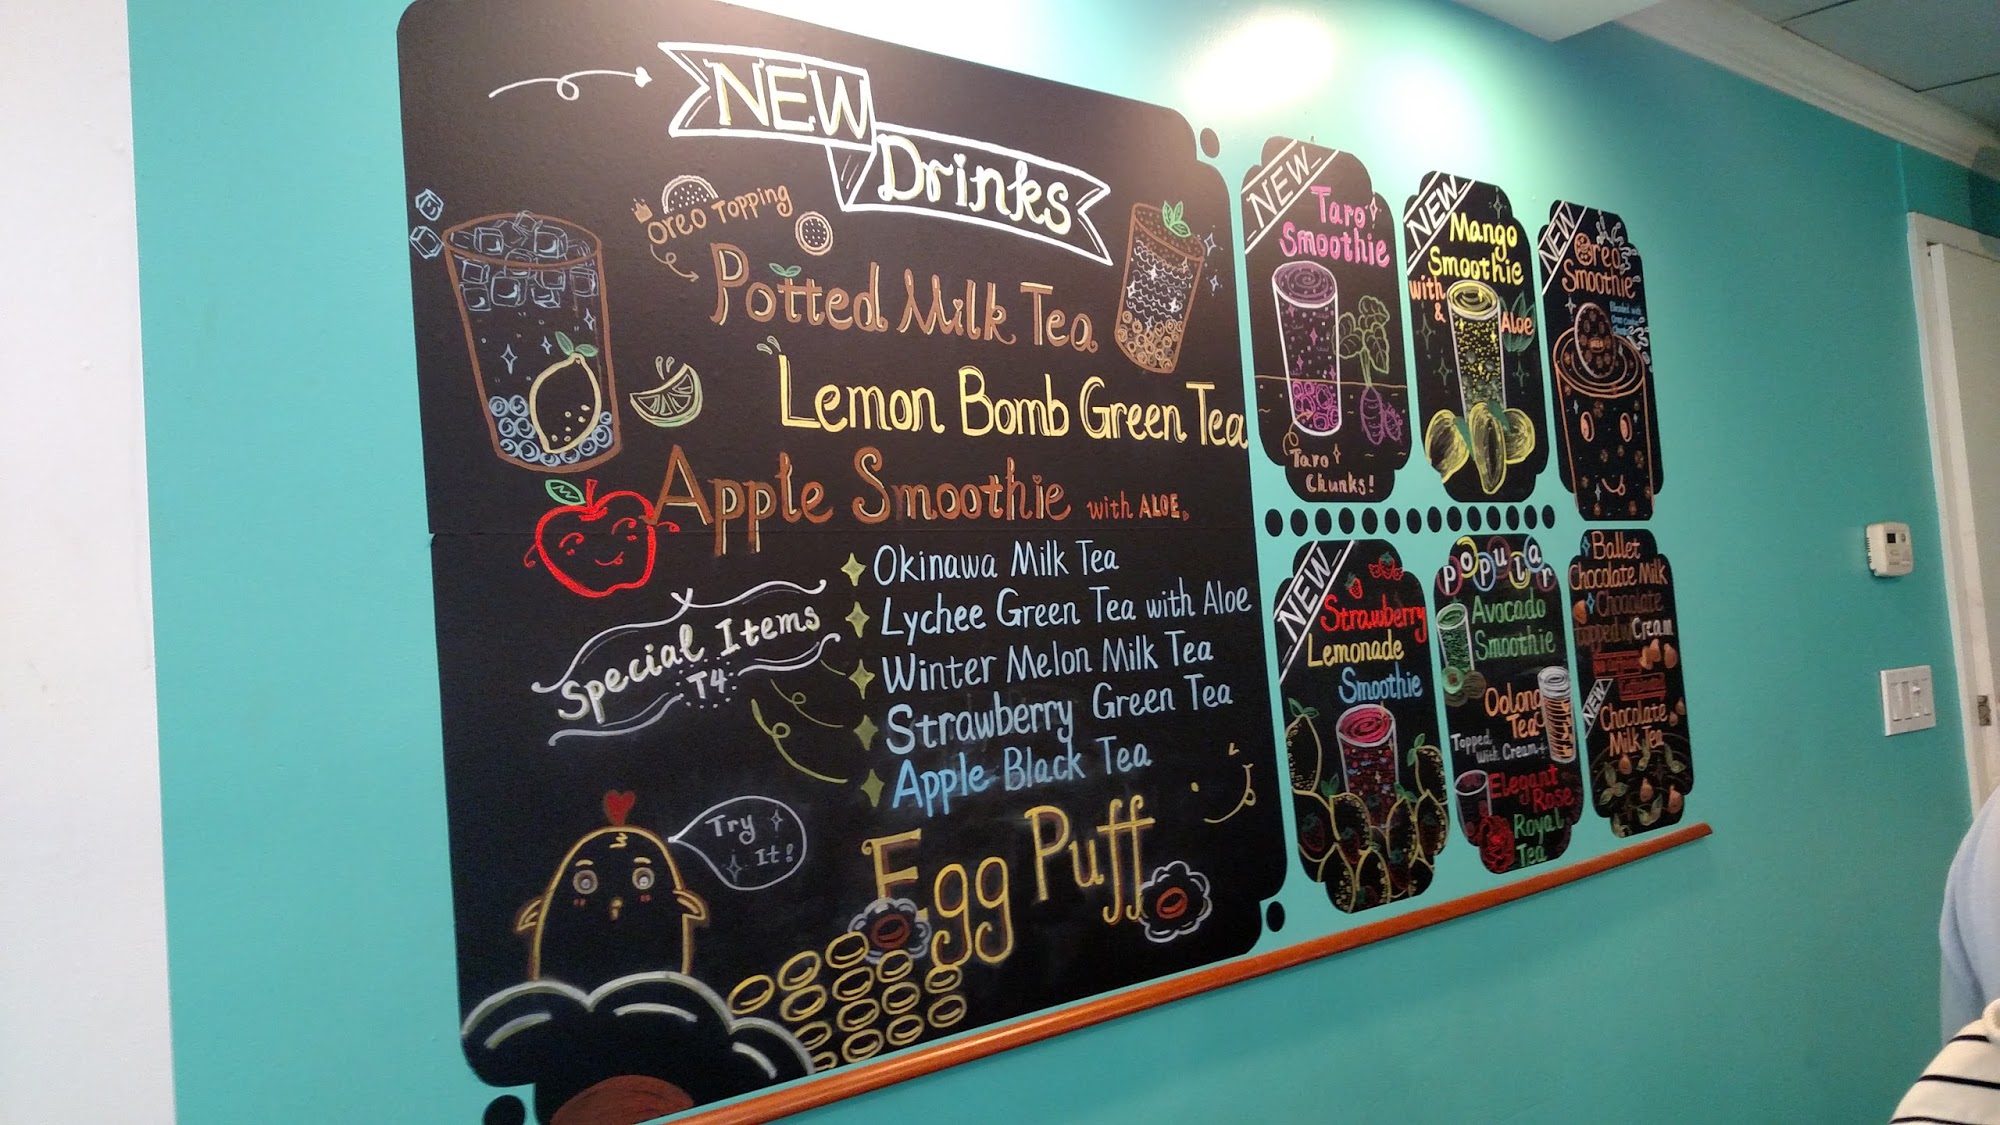 NEW
Drinks
Oreo Topping
Potted Milk Tea
Lemon Bomb Green Tea
Apple Smoothie with ALOE
Special Items
T4
Okinawa Milk Tea
Lychee Green Tea with Aloe
Winter Melon Milk Tea
Strawberry Green Tea
Apple Black Tea
Try
It!
Egg Puff
NEW
Taro
Smoothie
Taro
Chunks!
NEW
Mango
Smoothie
with
& Aloe
NEW
Oreo
Smoothie
Blended with
NEW
Strawberry
Lemonade
Smoothie
Popular
Avocado
Smoothie
Oolong
Tea
Topped
With Cream
Elegant
Rose
Royal
Tea
Ballet
Chocolate Milk
Chocolate
topped w/ Cream
NEW
Chocolate
Milk Tea